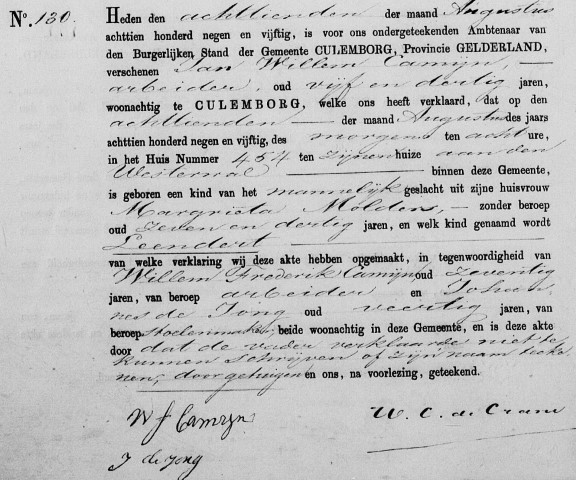 N°. 130.
Heden den achttienden der maand Augustus
achttien honderd negen en vijftig, is voor ons ondergeteekenden Ambtenaar van
den Burgerlijken Stand der Gemeente CULEMBORG, Provincie GELDERLAND,
verschenen Jan Willem Camijn, —
arbeider, oud vijf en dertig jaren,
woonachtig te CULEMBORG, welke ons heeft verklaard, dat op den
achttienden — der maand Augustus des jaars
achttien honderd negen en vijftig, des morgens ten acht ure,
in het Huis Nummer 454 ten zijnen huize aan den
Westerwal — binnen deze Gemeente,
is geboren een kind van het mannelijk geslacht uit zijne huisvrouw
Margrieta Molders, — zonder beroep
oud zeven en dertig jaren, en welk kind genaamd wordt
Leendert —
van welke verklaring wij deze akte hebben opgemaakt, in tegenwoordigheid van
Willem Frederik Camijn, oud zeventig
jaren, van beroep arbeider en Johan-
nes de Jong oud veertig jaren, van
beroep stoelenmaker, beide woonachtig in deze Gemeente, en is deze akte
door dat de vader verklaarde niet te
kunnen schrijven of zijn naam teeke-
nen, door getuigen en ons, na voorlezing, geteekend.
W f Camijn
W. C. de Crane
J de jong